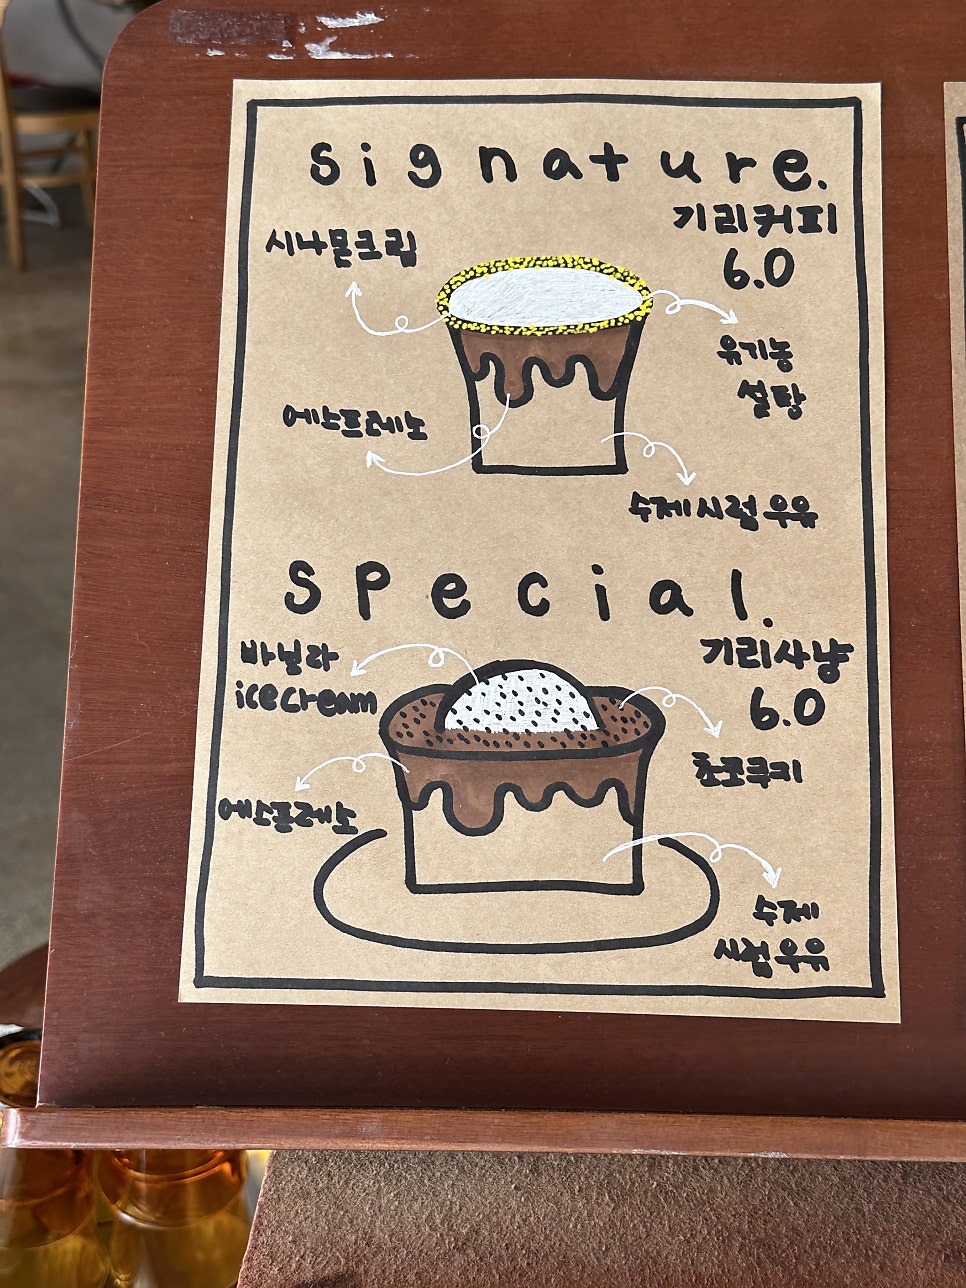 signature.
기리커피
6.0
시나몬크림
유기농
설탕
에스프레소
수제시럽우유
special.
기리사냥
6.0
바닐라
icecream
초코쿠키
에스프레소
수제
시럽우유